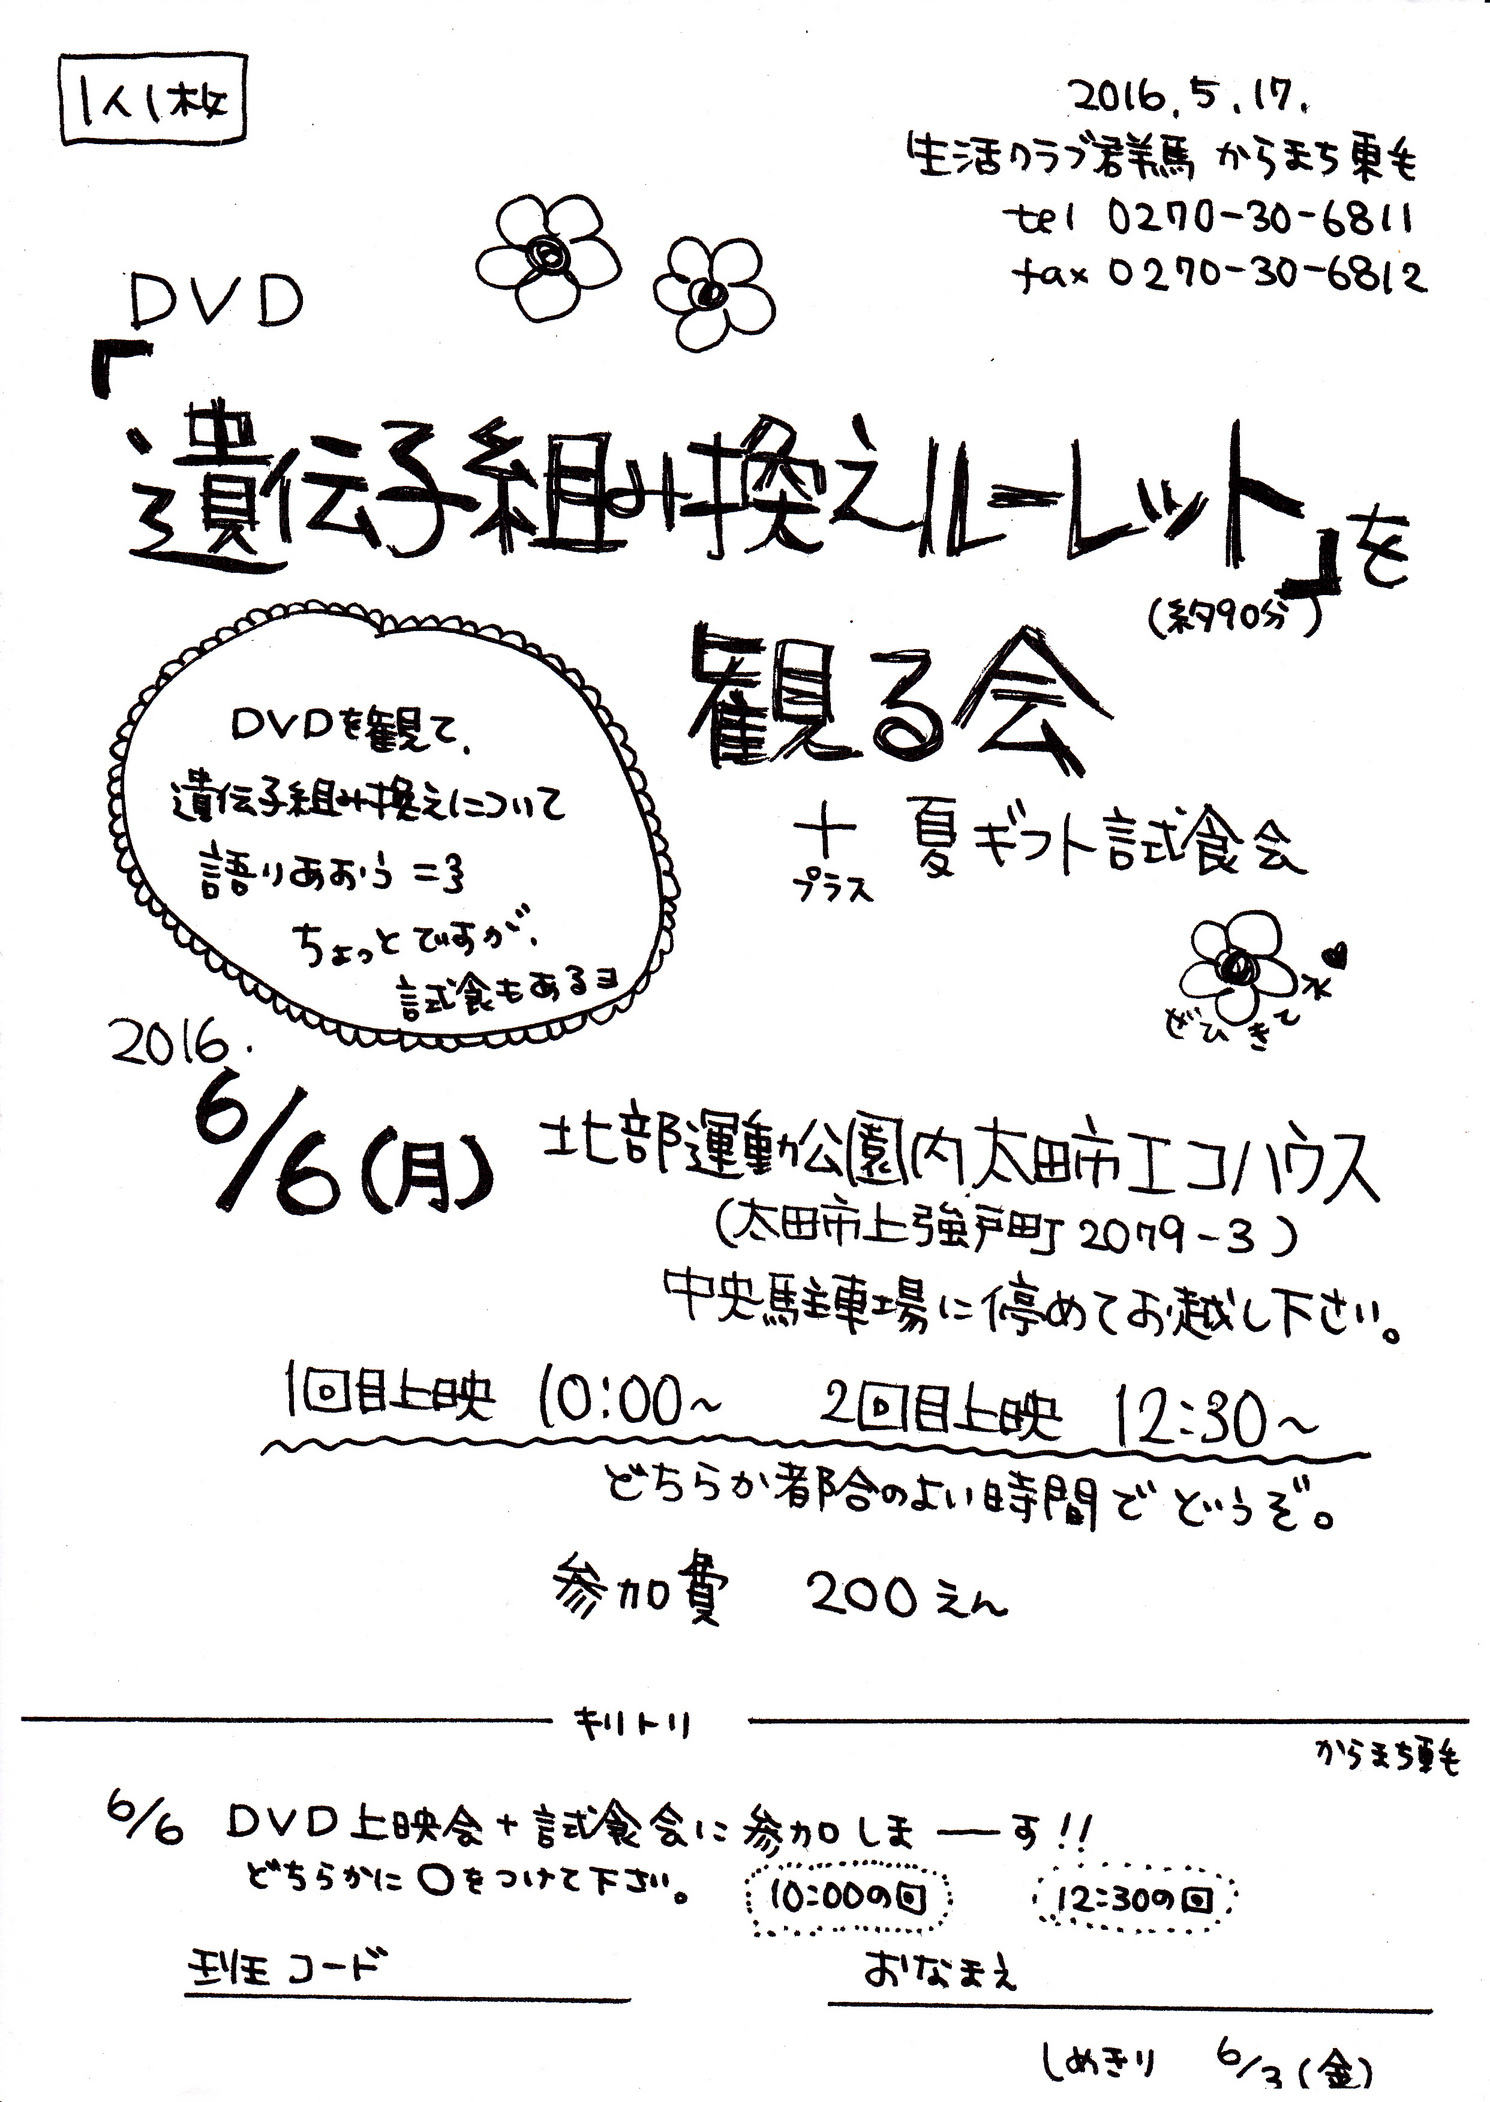 1人1枚
2016.5.17.
生活クラブ群馬 からまち東毛
tel 0270-30-6811
fax 0270-30-6812
DVD
「遺伝子組み換えルーレット」を
(約90分)
観る会
+ 夏ギフト試食会
プラス
DVDを観て、
遺伝子組み換えについて
語りあおう=3
ちょっとですが、
試食もあるヨ
ぜひきて水♥
2016.
6/6(月)
北部運動公園内太田市エコハウス
(太田市上強戸町2079-3)
中央駐車場に停めてお越し下さい。
1回目上映 10:00~ 2回目上映 12:30~
どちらか都合のよい時間でどうぞ。
参加費 200えん
キリトリ
からまち東毛
6/6 DVD上映会+試食会に参加しま――す!!
どちらかに〇をつけて下さい。 10:00の回 12:30の回
班コード おなまえ
しめきり 6/3(金)